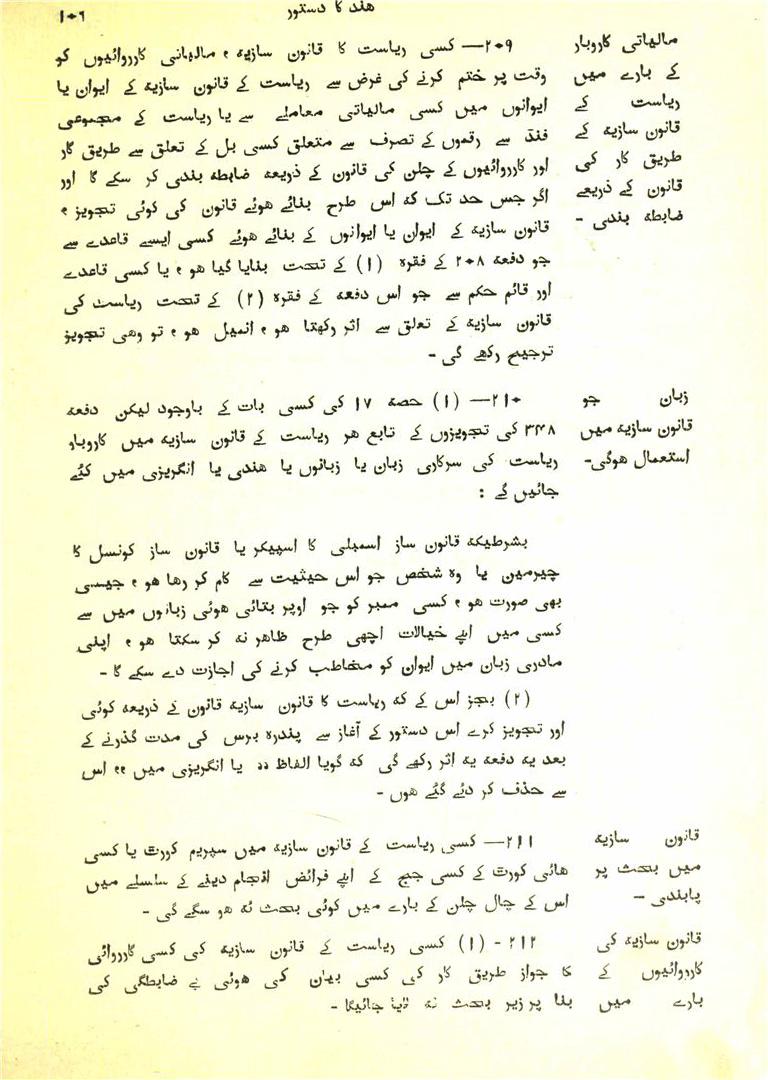 ھند کا دستور
١٠٦
مالیاتی کاروبار
کے بارے میں
ریاست کے
قانون سازیہ کے
طریق کار کی
قانون کے ذریعے
ضابطہ بندی -
٢٠٩— کسی ریاست کا قانون سازیہ ، مالیاتی کارروائیوں کو
وقت پر ختم کرنے کی غرض سے ریاست کے قانون سازیہ کے ایوان یا
ایوانوں میں کسی مالیاتی معاملے سے یا ریاست کے مجموعی
فنڈ سے رقموں کے تصرف سے متعلق کسی بل کے تعلق سے طریق کار
اور کارروائیوں کے چلن کی قانون کے ذریعہ ضابطہ بندی کر سکے گا اور
اگر جس حد تک کہ اس طرح بنائے ھوئے قانون کی کوئی تجویز ،
قانون سازیہ کے ایوان یا ایوانوں کے بنائے ھوئے کسی ایسے قاعدے سے
جو دفعہ ٢٠٨ کے فقرہ (١) کے تحت بنایا گیا ھو ، یا کسی قاعدے
اور قائم حکم سے جو اس دفعہ کے فقرہ (٢) کے تحت ریاست کی
قانون سازیہ کے تعلق سے اثر رکھتا ھو ، انمیل ھو ، تو وھی تجویز
ترجیح رکھے گی -
زبان جو
قانون سازیہ میں
استعمال ھوگی-
٢١٠— (١) حصہ ١٧ کی کسی بات کے باوجود لیکن دفعہ
٣٤٨ کی تجویزوں کے تابع ھر ریاست کے قانون سازیہ میں کاروبار
ریاست کی سرکاری زبان یا زبانوں یا ھندی یا انگریزی میں کئے
جائیں گے :
بشرطیکہ قانون ساز اسمبلی کا اسپیکر یا قانون ساز کونسل کا
چیرمین یا وہ شخص جو اس حیثیت سے کام کر رھا ھو ، جیسی
بھی صورت ھو ، کسی ممبر کو جو اوپر بتائی ھوئی زبانوں میں سے
کسی میں اپنے خیالات اچھی طرح ظاھر نہ کر سکتا ھو ، اپنی
مادری زبان میں ایوان کو مخاطب کرنے کی اجازت دے سکے گا -
(٢) بجز اس کے کہ ریاست کا قانون سازیہ قانون کے ذریعہ کوئی
اور تجویز کرے اس دستور کے آغاز سے پندرہ برس کی مدت گذرنے کے
بعد یہ دفعہ یہ اثر رکھے گی کہ گویا الفاظ ,, یا انگریزی میں ،، اس
سے حذف کر دئے گئے ھوں -
قانون سازیہ
میں بحث پر
پابندی —
٢١١— کسی ریاست کے قانون سازیہ میں سپریم کورٹ یا کسی
ھائی کورٹ کے کسی جج کے اپنے فرائض انجام دینے کے سلسلے میں
اس کے چال چلن کے بارے میں کوئی بحث نہ ھو سکے گی -
قانون سازیہ کی
کارروائیوں کے
بارے میں
٢١٢ - (١) کسی ریاست کے قانون سازیہ کی کسی کارروائی
کا جواز طریق کار کی کسی بیان کی ھوئی بے ضابطگی کی
بنا پر زیر بحث نہ لایا جائیگا -